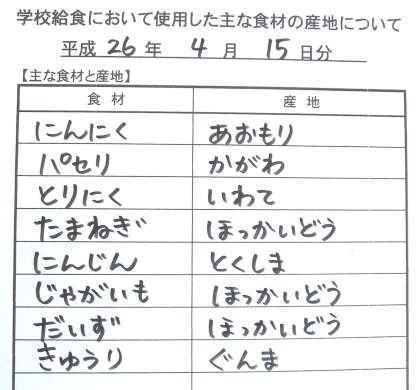 学校給食において使用した主な食材の産地について
平成 26 年 4 月 15 日分
【主な食材と産地】
食材 産地
にんにく あおもり
パセリ かがわ
とりにく いわて
たまねぎ ほっかいどう
にんじん とくしま
じゃがいも ほっかいどう
だいず ほっかいどう
きゅうり ぐんま